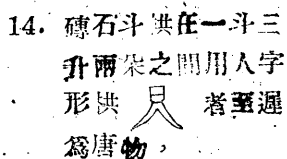 14. 磚石斗拱在一斗三
升兩朶之間用人字
形拱 者至遲
爲唐物，